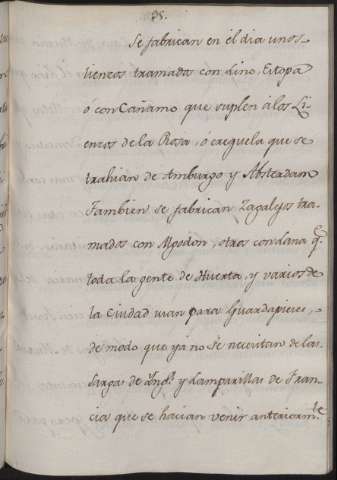 75.
Se fabrican en el dia unos
lienzos tramados con Lino, Estopa
o con Cañamo que suplen a los Li-
enzos de la Rosa, o creguela que se
trahian de Amburgo y Absterdam
Tambien se fabrican Zagalejos tra-
mados con Algodon, otros con lana q.e
toda la gente de Huerta, y varios de
la Ciudad usan para Guardapieses,
de modo que ya no se necesitan de las
sargas de Yng.a y Lamparillas de Fran-
cia que se hacian venir anteriorm.te